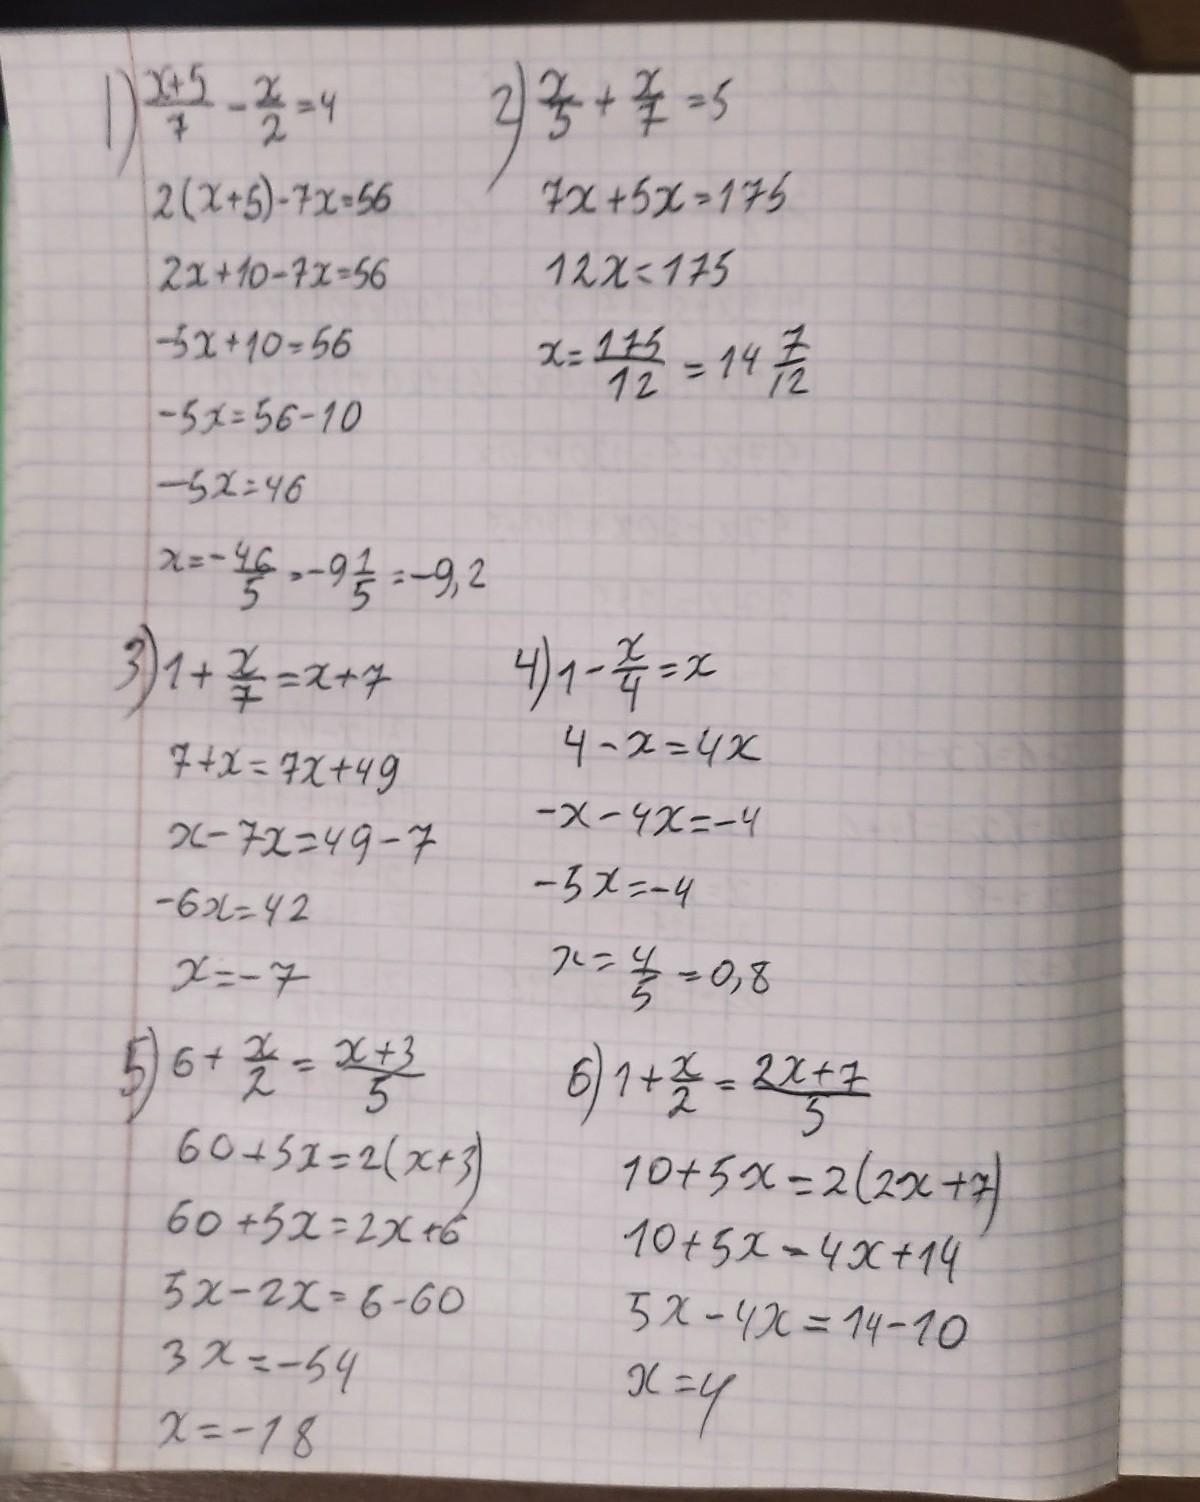 1) (x+5)/7 - x/2 = 4
2(x+5)-7x=56
2x+10-7x=56
-5x+10=56
-5x=56-10
-5x=46
x=-46/5=-9 1/5=-9,2
2) x/5 + x/7 = 5
7x+5x=175
12x=175
x=175/12=14 7/12
3) 1+x/7=x+7
7+x=7x+49
x-7x=49-7
-6x=42
x=-7
4) 1-x/4=x
4-x=4x
-x-4x=-4
-5x=-4
x=4/5=0,8
5) 6+x/2=(x+3)/5
60+5x=2(x+3)
60+5x=2x+6
5x-2x=6-60
3x=-54
x=-18
6) 1+x/2=(2x+7)/5
10+5x=2(2x+7)
10+5x=4x+14
5x-4x=14-10
x=4